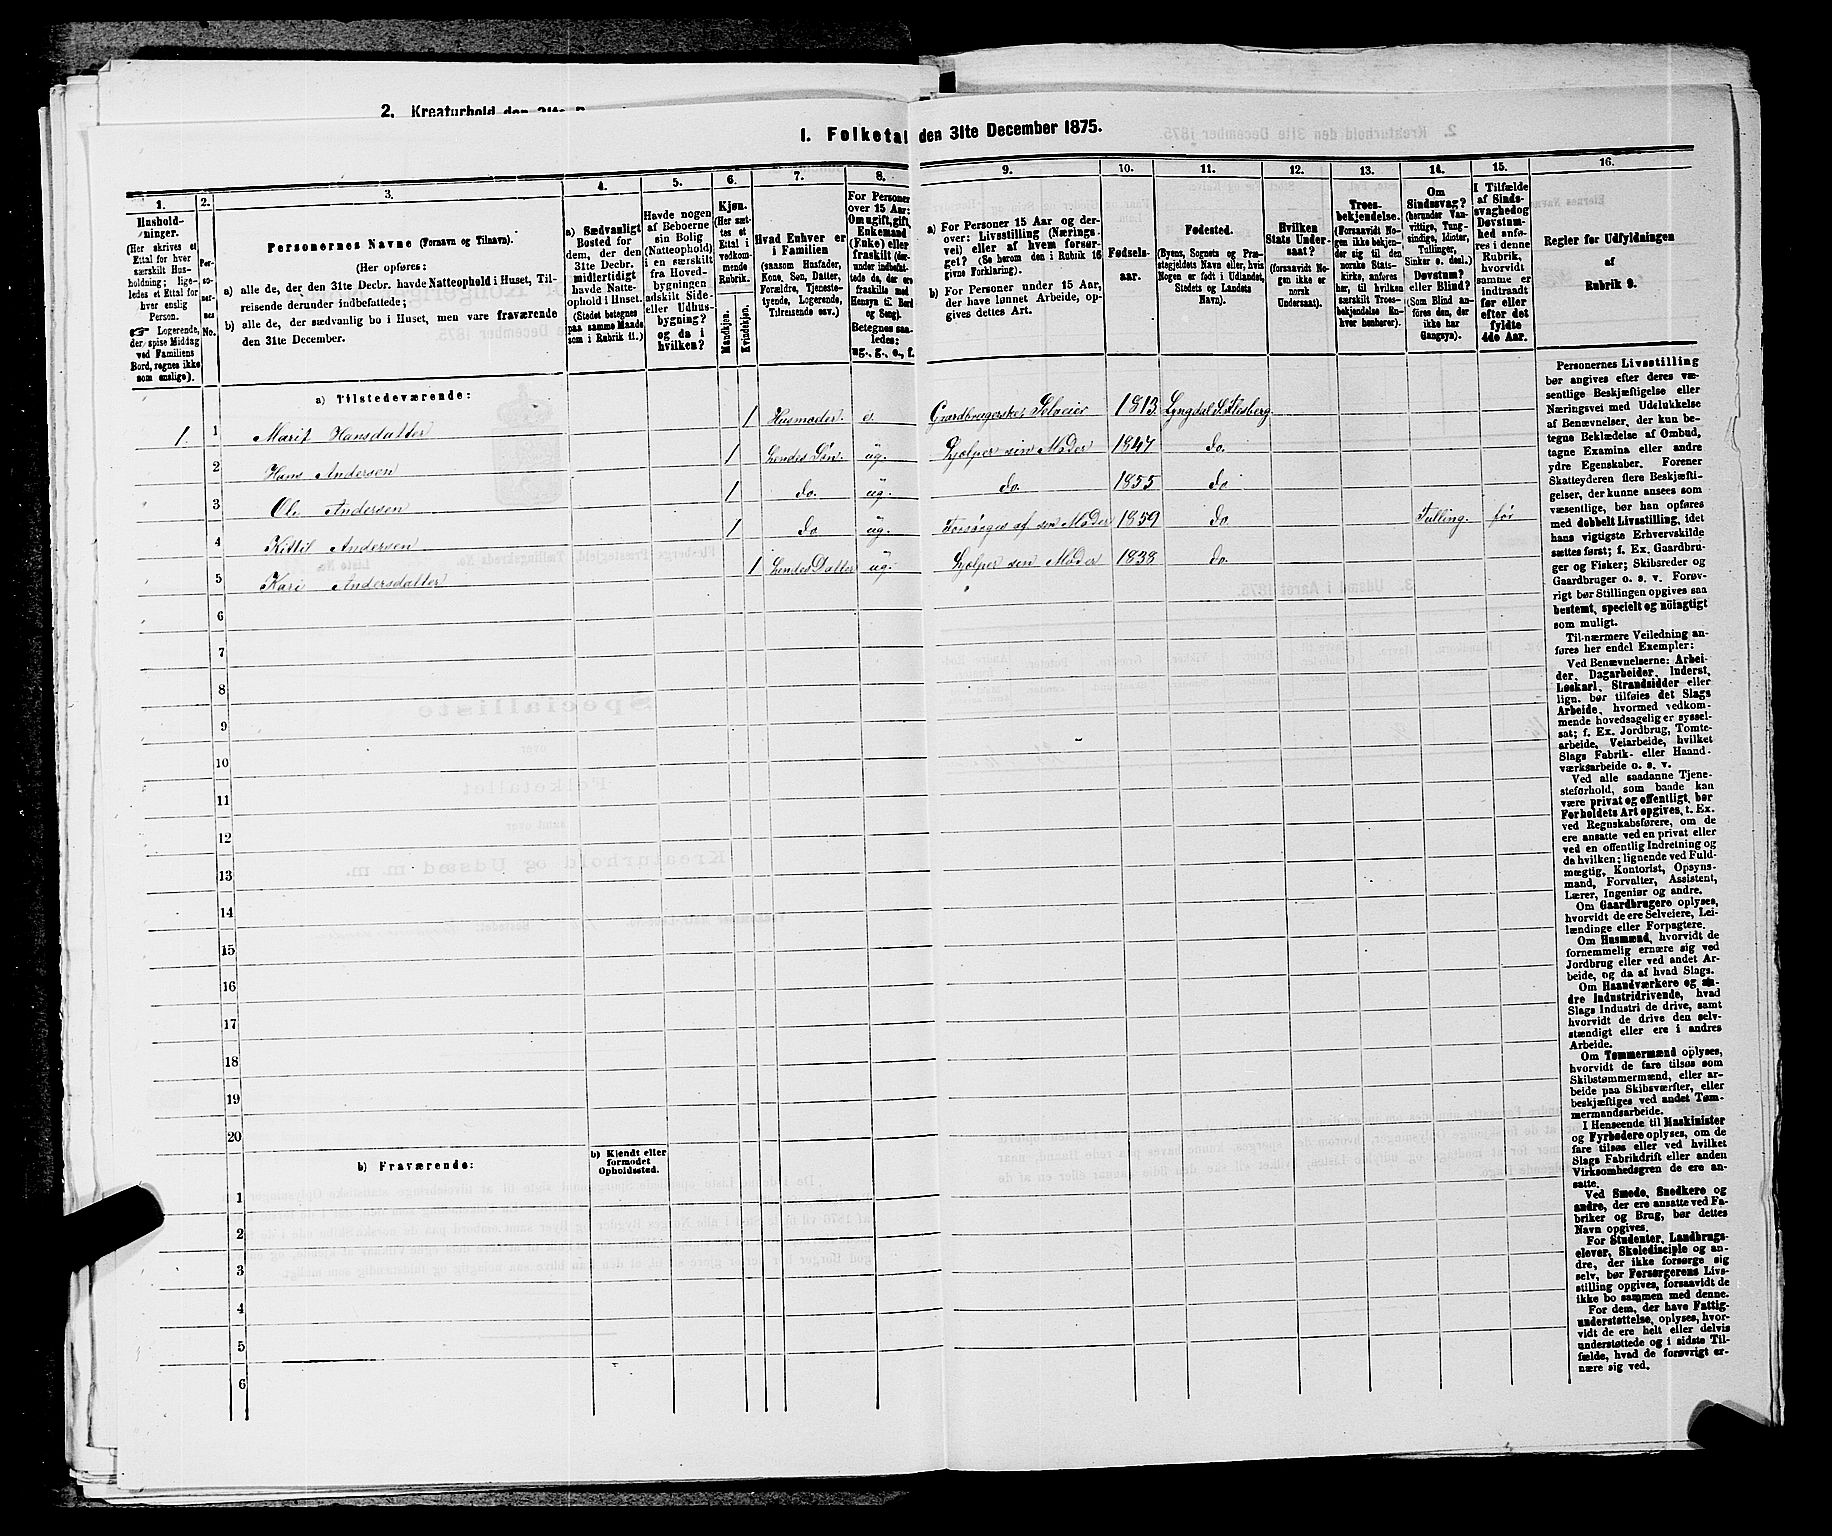 2. Kreaturhold den 31te
1. Folketal den 31te December 1875.
1.
Hushold-
ninger.
(Her skrives et
Ettal for hver
særskilt Hus-
holdning; lige-
ledes et Ettal for
hver enslig
Person.
☞ Logerende,
der spise Middag
ved Familiens
Bord, regnes ikke
som enslige).
2.
Per-
so-
ner-
nes
No.
3.
Personernes Navne (Fornavn og Tilnavn).
(Her opføres:
a) alle de, der den 31te Decbr. havde Natteophold i Huset, Til-
reisende derunder indbefattede;
b) alle de, der sædvanlig bo i Huset, men vare fraværende
den 31te December.
4.
a) Sædvanligt
Bosted for
dem, der den
31te Decbr.
midlertidigt
havde Natte-
ophold i Huset.
(Stedet betegnes
paa samme Maade
som i Rubrik 11.)
5.
Havde nogen
af Beboerne
sin Bolig
(Natteophold)
i en særskilt
fra Hoved-
bygningen
adskilt Side-
eller Udhus-
bygning?
og da i
hvilken?
6.
Kjøn.
(Her sæt-
tes et
Ettal i
vedkom-
mende
Rubrik.
Mandkjøn.
Kvindekjøn.
7.
Hvad Enhver er
i Familien
(saasom Husfader,
Kone, Søn, Datter,
Forældre, Tjeneste-
tyende, Logerende,
Tilreisende osv.)
8.
For Personer
over 15 Aar:
Om ugift, gift,
Enkemand
(Enke) eller
fraskilt (der-
under indbefat-
tede de, der ere
fraskilte med
Hensyn til Bord
og Seng).
Betegnes saa-
ledes:
ug., g., e., f.
9.
a) For Personer 15 Aar og der-
over: Livsstilling (Nærings-
vei) eller af hvem forsør-
get? (Se herom den i Rubrik 16
givne Forklaring).
b) For Personer under 15 Aar,
der have lønnet Arbeide, op-
gives dettes Art.
10.
Fødsels-
aar.
11.
Fødested.
(Byens, Sognets og Præ-
stegjeldets Navn eller, hvis
Nogen er født i Udlandet,
Stedets og Landets
Navn).
12.
Hvilken
Stats Under-
saat?
(forsaavidt No-
gen ikke er
norsk
Undersaat).
13.
Troes-
bekjendelse.
(Forsaavidt No-
gen ikke bekjen-
der sig til den
norske Stats-
kirke, anføres
her, til hvilken
særskilt Troes-
bekjendelse En-
hver henhører).
14.
Om
Sindssvag?
(herunder Van-
vittige, Tung-
sindige, Idioter,
Tullinger,
Sinker o. desl.)
Døvstum?
eller Blind?
(Som Blind an-
føres den, der
ikke har
Gangsyn).
15.
I Tilfælde
af Sinds-
svaghed og
Døvstum-
hed anfø-
res i denne
Rubrik,
hvorvidt
samme er
indtraadt
før eller
efter det
fyldte
4de Aar.
16.
Regler for Udfyldningen
af
Rubrik 9.
a) Tilstedeværende:
1. 1 Marit Hansdatter 1 Husmoder e. Gaardbrugerske, Selveier 1813. Lyngdal S. Flesberg.
2 Hans Andersen 1 Hendes Søn. ug. Hjælper sin Moder 1847 do.
3 Ole Andersen 1 do. ug. do. 1855 do
4 Kittil Andersen 1 do ug. Forsørges af sin Moder 1859 do. Tulling. før
5 Kari Andersdatter 1 Hendes Datter ug. Hjælper sin Moder 1838 do.
6
7
8
9
10
11
12
13
14
15
16
17
18
19
20
b) Fraværende:
b) Kjendt eller
formodet
Opholdssted.
1
2
3
4
5
6
Personernes Livsstilling
bør angives efter deres væ-
sentlige Beskjæftigelse eller
Næringsvei med Udelukkelse
af Benævnelser, der kun be-
tegne Beklædelse af Ombud,
tagne Examina eller andre
ydre Egenskaber. Forener
Skatteyderen flere Beskjæfti-
gelser, der kunne ansees som
væsentlige, bør han opføres
med dobbelt Livsstilling, idet
hans vigtigste Erhvervskilde
sættes først; f. Ex. Gaardbru-
ger og Fisker; Skibsreder og
Gaardbruger o. s. v. Forøv-
rigt bør Stillingen opgives saa
bestemt, specielt og nöiagtigt
som muligt.
Til nærmere Veiledning an-
føres her endel Exempler:
Ved Benævnelserne: Arbei-
der, Dagarbeider, Inderst,
Løskarl, Strandsidder eller
lign. bør tilføies det Slags
Arbeide, hvormed vedkom-
mende hovedsagelig er syssel-
sat; f. Ex. Jordbrug, Tomte-
arbeide, Veiarbeide, hvilket
Slags Fabrik- eller Haand-
værksarbeide o. s. v.
Ved alle saadanne Tjene-
steforhold, som baade kan
være privat og offentligt, bør
Forholdets Art opgives, t. Ex.
ved Regnskabsførere, om de
ere ansatte ved en privat eller
ved en offentlig Indretning og
da hvilken; lignende ved Fuld-
mægtig, Kontorist, Opsyns-
mand, Forvalter, Assistent,
Lærer, Ingeniør og andre.
Om Gaardbrugere oplyses,
hvorvidt de ere Selveiere, Lei-
lændinge eller Forpagtere.
Om Husmænd, hvorvidt de
fornemmelig ernære sig ved
Jordbrug eller ved andet Ar-
beide, og da af hvad Slags.
Om Haandværkere og an-
dre Industridrivende, hvad
Slags Industri de drive, samt
hvorvidt de drive den selv-
stændigt eller ere i andres
Arbeide.
Om Tømmermænd oplyses,
hvorvidt de fare tilsøs som
Skibstømmermænd, eller ar-
beide paa Skibsværfter, eller
beskjæftiges ved andet Tøm-
mermandsarbeide.
I Henseende til Maskinister
og Fyrbødere oplyses, om de
fare tilsøs eller ved hvilket
Slags Fabrikdrift eller anden
Virksomhedsgren de ere an-
satte.
Ved Smede, Snedkere og
andre, der ere ansatte ved Fa-
briker og Brug, bør dettes
Navn opgives.
For Studenter, Landbrugs-
elever, Skoledisciple og an-
dre, der ikke forsørge sig
selv, bør Forsørgerens Livs-
stilling opgives, forsaavidt de
ikke bo sammen med denne.
For dem, der have Fattig-
understøttelse, oplyses, hvor-
vidt de ere helt eller delvis
understøttede og i sidste Til-
fælde, hvad de forøvrigt er-
nære sig ved.